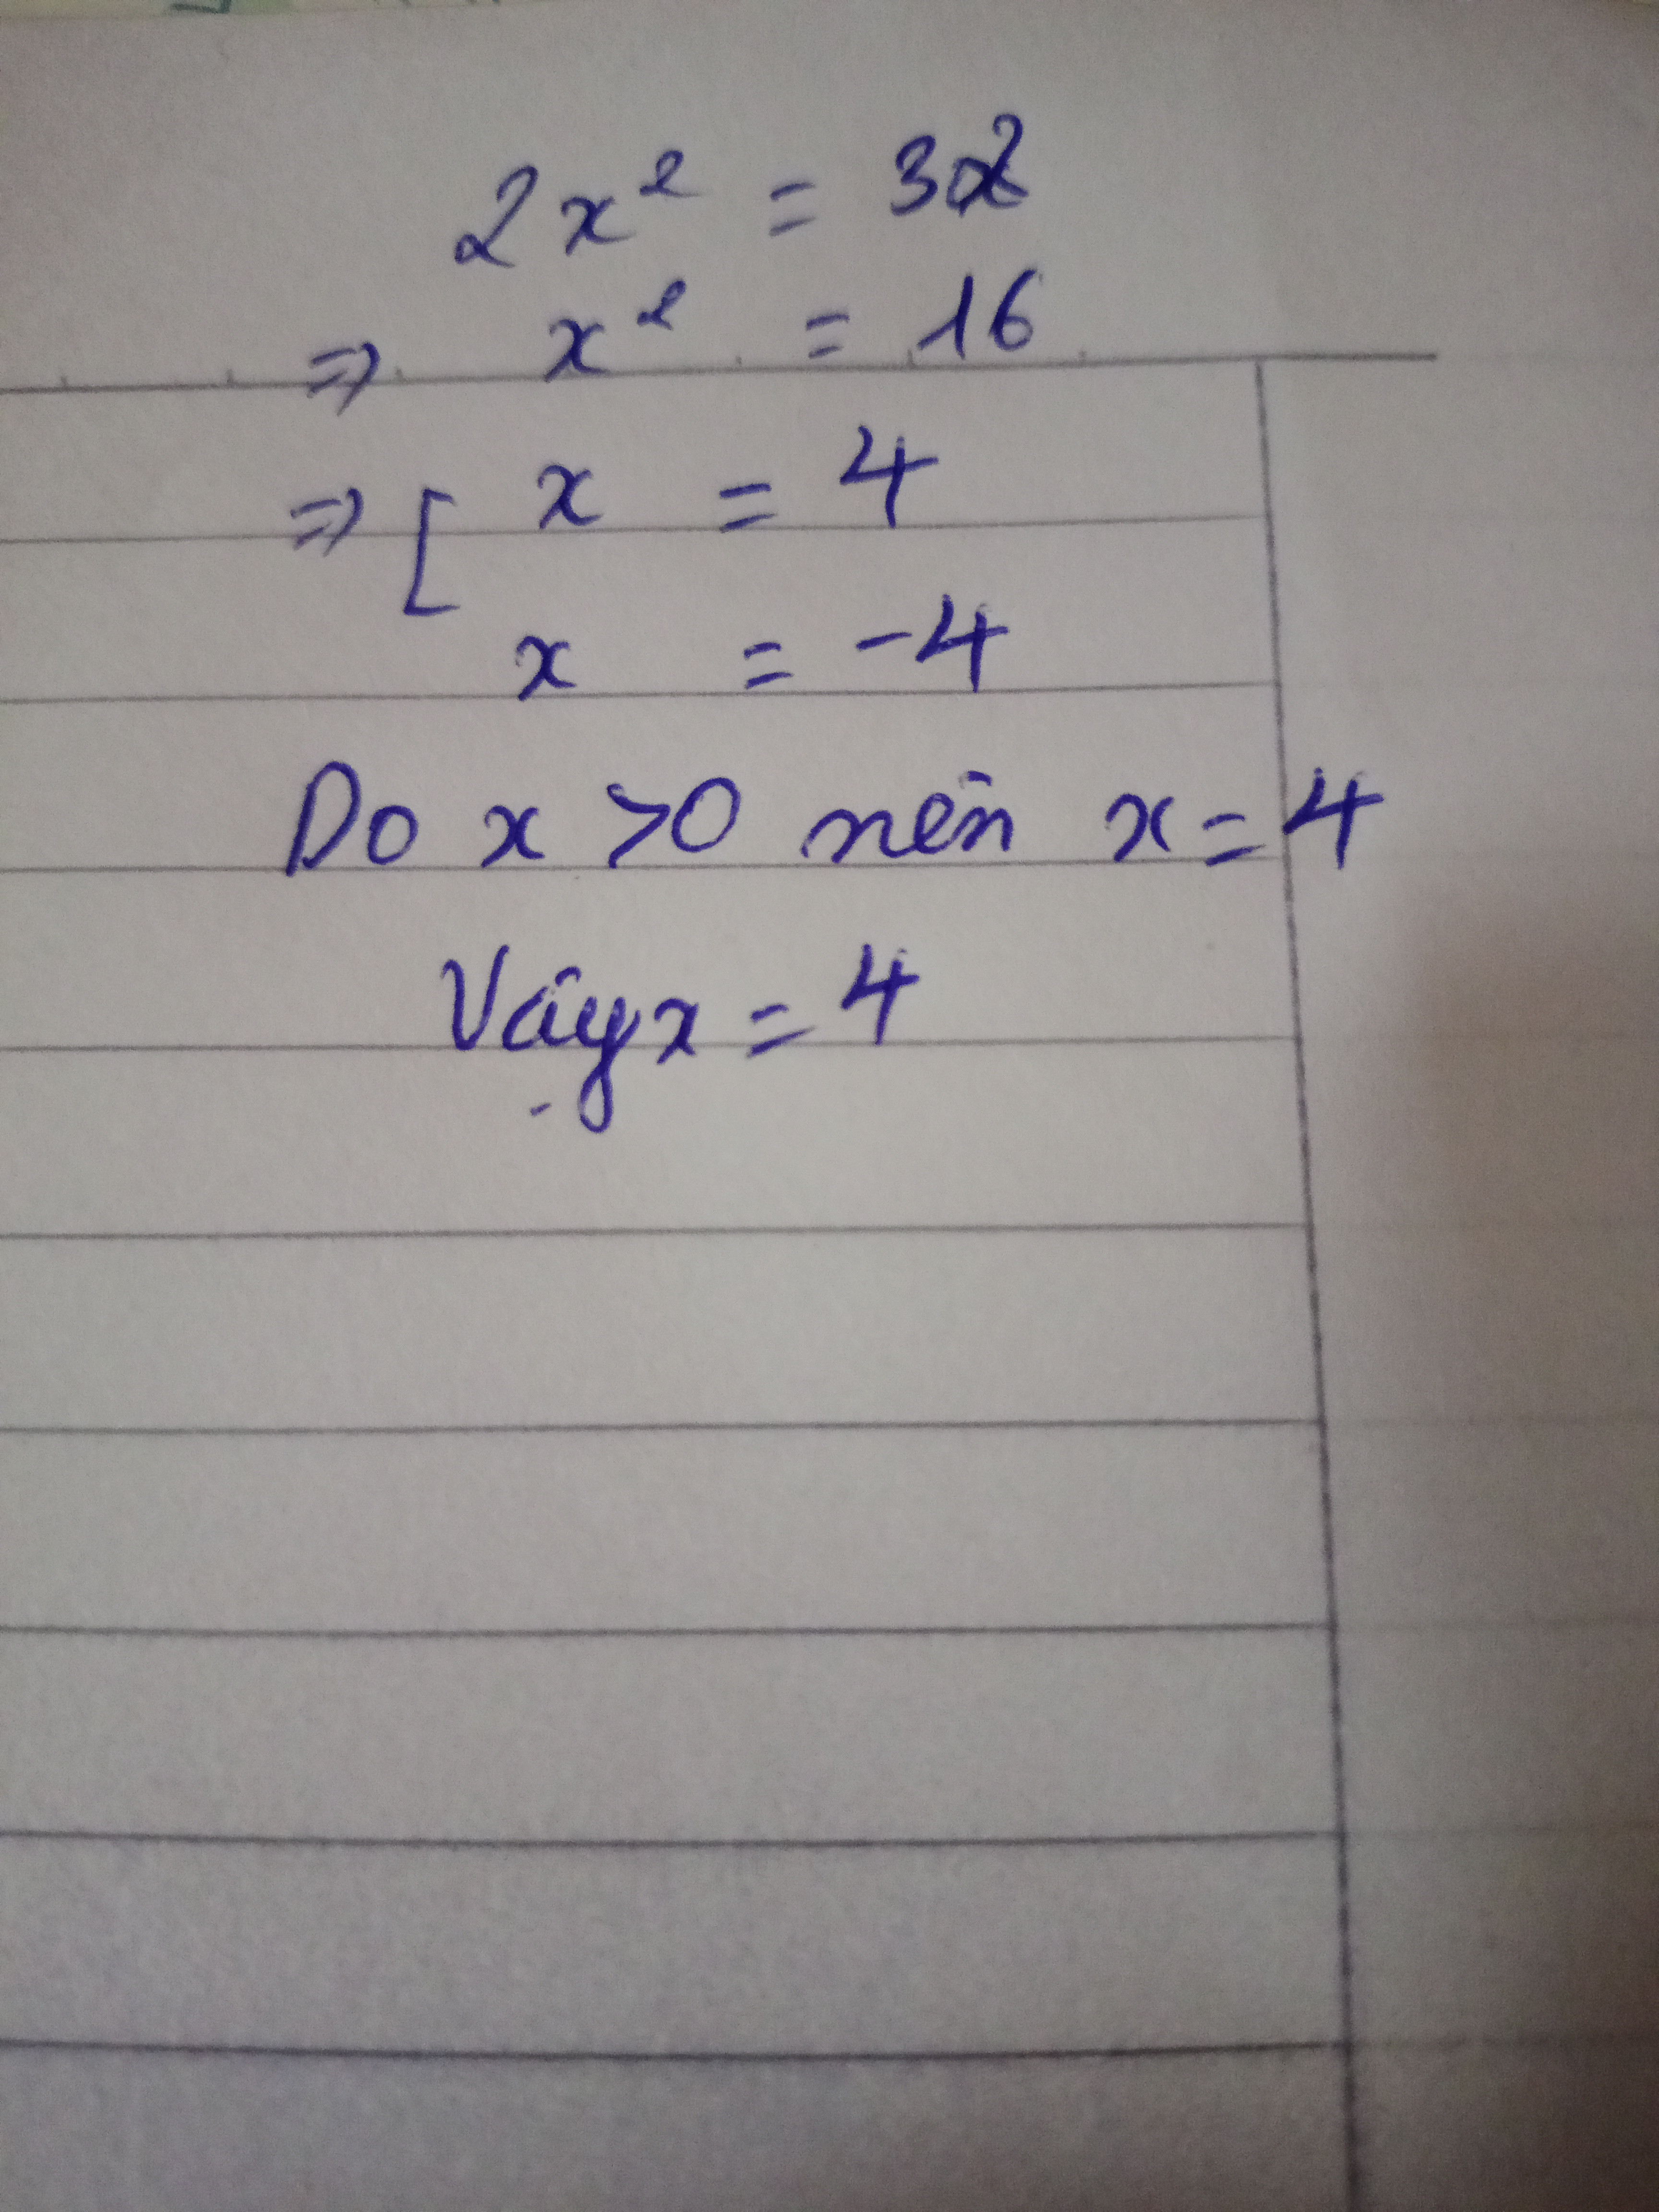 2x² = 32
=> x² = 16
=> [ x = 4
x = -4
Do x >0 nên x = 4
Vậy x = 4